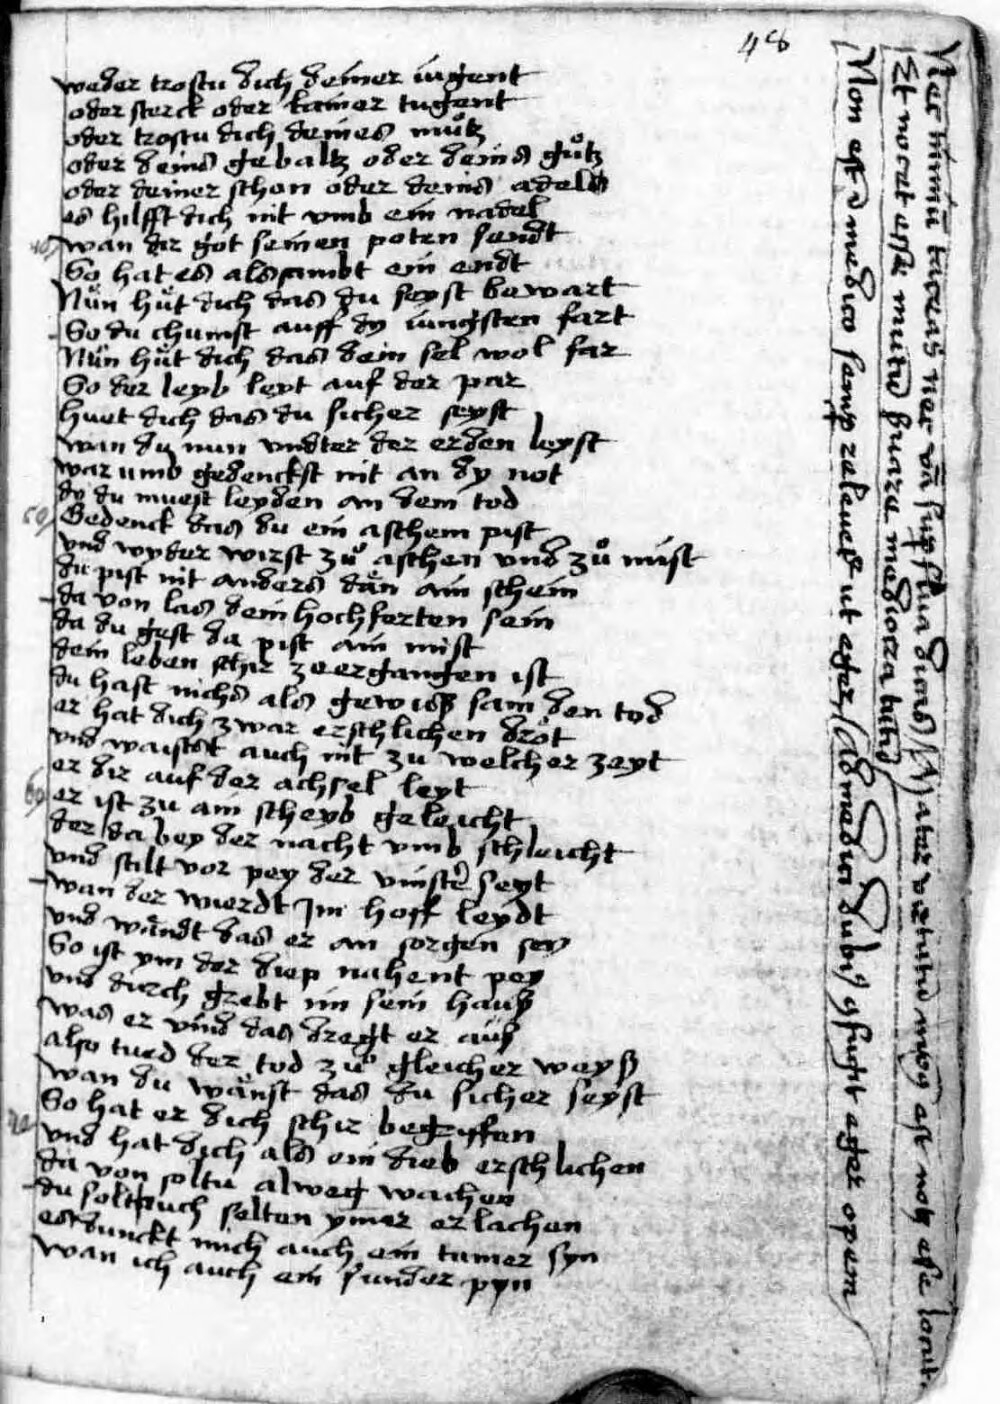 48
weder trostu dich deiner iugent
oder sterck oder kainer tugent
oder trostu dich deines můtz
oder deins gebaltz oder deins gůtz
oder deiner schon oder deins adels
es hilfft dich nit vmb ein nadel
wan dir got seinen poten sendt
So hat es alssambt ein endt
Nůn hůt dich das du seyst bewart
So du chumst auff dy iungsten fart
Nůn hůt dich das dein sel wol far
So der leyb leyt auf der par
huet dich das du sicher seyst
wan du nun vndter der erden leyst
warumb gedenckst nit an dy not
dy du muest leyden an dem tod
Gedenck das du ein aschem pist
vnd wyder wirst zů aschen vnd zů mist
du pist nit anders dan ain schein
da von las dein hochferten sein
da du gest da pist ain mist
dein leben schir zeergangen ist
du hast nichs als gewiss sam den tod
er hat dich zwar erschlichen drot
vnd waistat auch nit zu welcher zeyt
er dir auf der achsel leyt
er ist zu am scheyb geleicht
der da bey der nacht vmb schleicht
vnd stilt vor pey der vinster seyt
wan der wierdt Im hoff leydt
vnd wandt das er an sorgen sey
So ist ym der diep nahent pey
vnd durch grebt im sein hauß
was er vind das dregt er auß
also tued der tod zů gleicher weyß
wan du wanst das du sicher seyst
So hat er dich schir begriffen
vnd hat dich als ein dieb erschlichen
da von soltu alweg wachen
du solt auch selten ymer erlachen
es dunckt mich auch ein tumer syn
wan ich auch ein sunder pyn
Non est in medico semper releuet ut eger
Et nocet esse
Nec nimium taceas nec